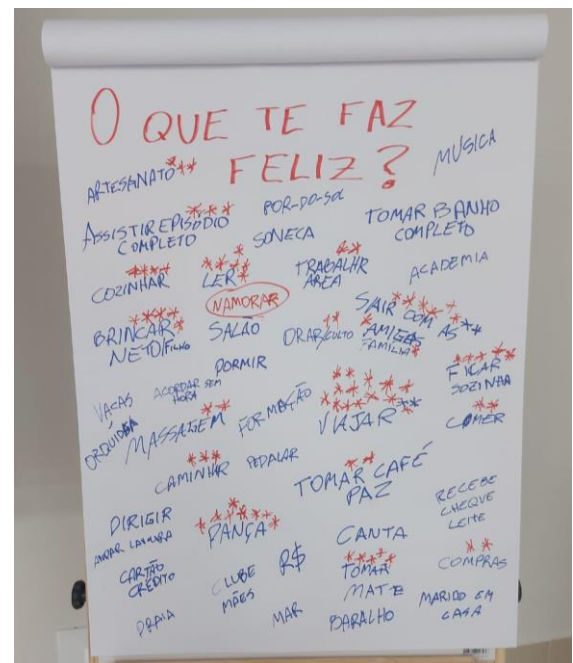 O QUE TE FAZ
FELIZ?
MÚSICA
ARTESANATO ***
ASSISTIR EPISÓDIO ****
COMPLETO
POR-DO-SOL
SONECA
TOMAR BANHO
COMPLETO
COZINHAR ****
LER *****
TRABALHR **
ÁREA
ACADEMIA
NAMORAR
BRINCAR *****
NETO/FILHO
SALÃO
ORAR/CULTO **
SAIR COM AS
AMIGAS
FAMILIA
DORMIR
FICAR *****
SOZINHA
VACAS
ACORDAR SEM
HORA
ORQUÍDEA
MASSAGEM **
FORMAÇÃO
VIAJAR
COMER **
CAMINHAR ***
PEDALAR
TOMAR CAFÉ **
PAZ
RECEBE
CHEQUE
LEITE
DIRIGIR
LAVOURA
DANÇA
CANTA
CARTÃO
CRÉDITO
CLUBE
MÃES
R$
TOMAR ****
MATE
COMPRAS **
PRAIA
MAR
BARALHO
MARIDO EM
CASA